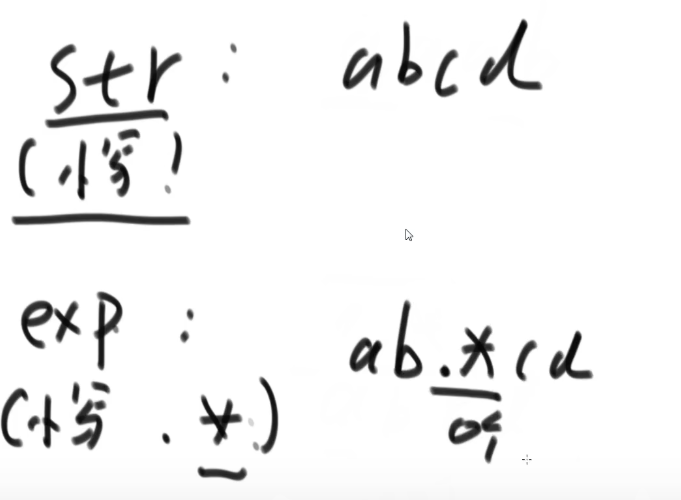 str: abcd
(小写)
exp: ab.*cd
(小写 . *)